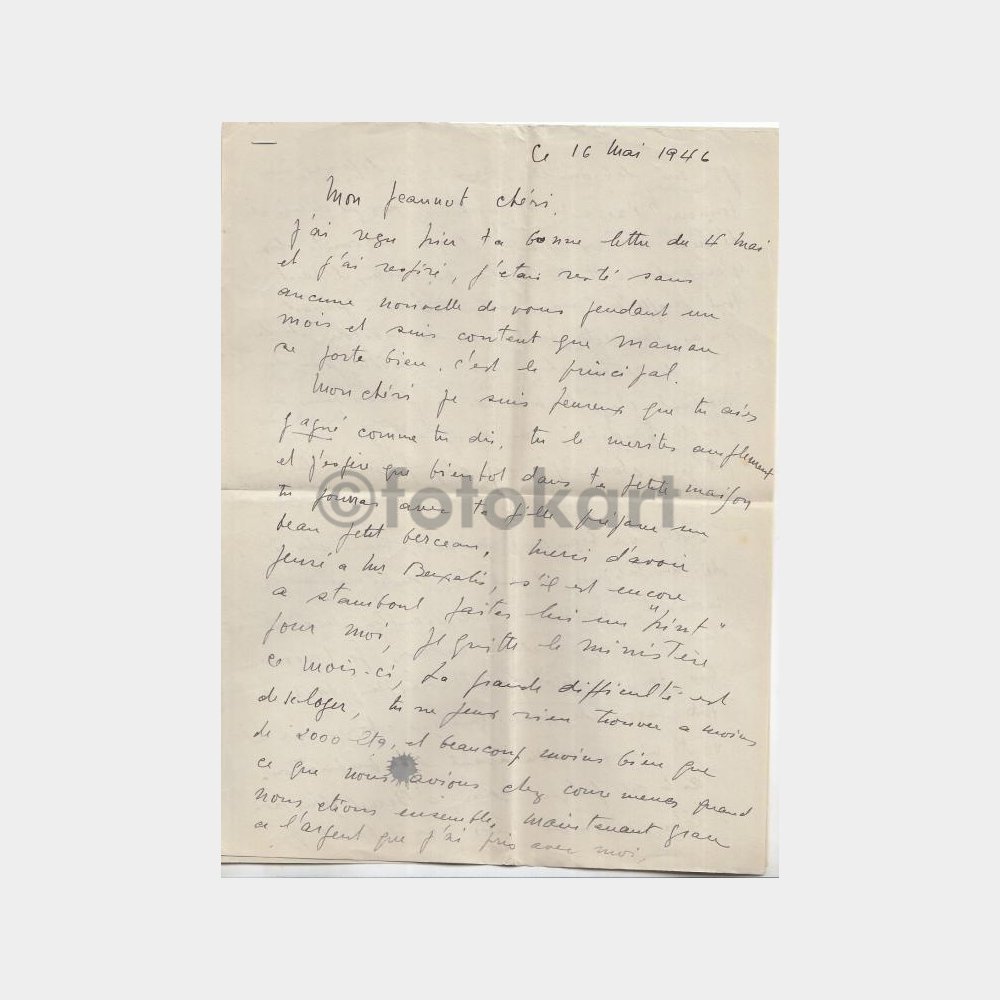 Ce 16 Mai 1946
Mon Jeannot chéri,
J'ai reçu hier ta bonne lettre du 4 Mai
et j'ai respiré, j'étais resté sans
aucune nouvelle de vous pendant un
mois et suis content que maman
se porte bien, c'est le principal.
Mon chéri je suis heureux que tu aies
gagné comme tu dis, tu le merites amplement
et j'espère que bientot dans ta petite maison
tu pourras avec ta fille préparer un
beau petit berceau, Merci d'avoir
pensé a Mr, s'il est encore
a stamboul faites lui un
pour moi, Je quitte le ministère
ce mois-ci, La grande difficulté est
de se loger, tu ne peux rien trouver a moins
de 2000, et beaucoup moins bien que
ce que nous avions chez quand
nous étions ensemble, maintenant grace
a l'argent que j'ai pris avec moi,
©fotokart